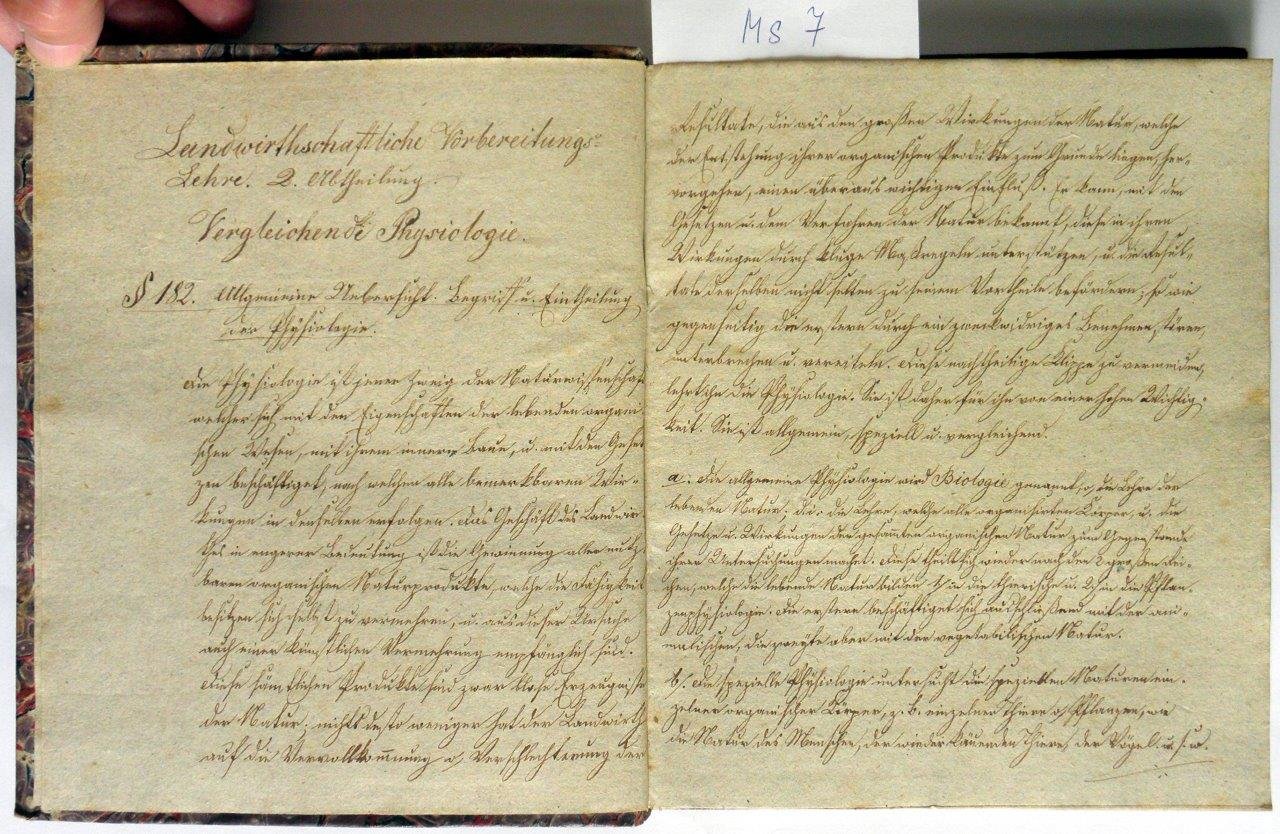 Ms 7
Landwirthschaftliche Vorbereitungs-
Lehre. 2. Abtheilung.
Vergleichende Physiologie.
§ 182. Allgemeine Uebersicht. Begriff u. Eintheilung
der Physiologie.
Die Physiologie ist jener Zweig der Naturwissenschaft
welcher sich mit den Eigenschaften der lebenden organi-
schen Wesen, mit ihrem innern Baue, u. mit den Geset-
zen beschäftiget, nach welchen alle bemerkbaren Wir-
kungen in denselben erfolgen. Das Geschäft des Landwir-
thes in engerer Bedeutung ist die Gewinnung aller nutz-
baren organischen Naturprodukte, welche die Fähigkeit
besitzen sich selbst zu vermehren, u. aus dieser Ursache
auch einer künstlichen Vermehrung empfänglich sind.
Diese sämtlichen Produkte sind zwar bloße Erzeugnisse
der Natur; nichts desto weniger hat der Landwirth
auf die Vervollkom̄nung o. Verschlechterung der
Resultate, die aus den großen Wirkungen der Natur, welche
der Entstehung ihrer organischen Produkte zum Grunde liegen, her-
vorgehen, einen überaus wichtigen Einfluß. Er kann, mit den
Gesetzen u. dem Verfahren der Natur bekannt, diese in ihren
Wirkungen durch kluge Maßregeln unterstützen, u. die Resul-
tate derselben nicht selten zu seinem Vortheile befördern; so wie
gegenseitig die erstern durch ein zweckwidriges Benehmen stören,
unterbrechen u. vereiteln. Diese nachtheilige Klippe zu vermeiden,
lehrt ihn die Physiologie. Sie ist daher für ihn von einer hohen Wichtig-
keit. Sie ist allgemein, speziell u. vergleichend.
a. Die allgemeine Physiologie wird Biologie genannt, o. die Lehre der
lebenden Natur; d. i. die Lehre, welche alle organisirten Körper, u. die
Gesetze u. Wirkungen der gesam̄ten organischen Natur zum Gegenstande
ihrer Untersuchungen macht. Diese theilt sich wieder nach den 2 großen Rei-
chen, welche die lebende Natur bilden in die thierische u. in die Pflan-
zenphysiologie. Die erstere beschäftiget sich ausschließend mit der ani-
malischen, die zweyte aber mit der vegetabilischen Natur.
b. Die spezielle Physiologie untersucht die speziellen Naturen ein-
zelner organischer Körper, z. B. einzelner Thiere o. Pflanzen, wie
die Natur des Menschen, der wiederkäuenden Thiere, der Vögel u. s. w.